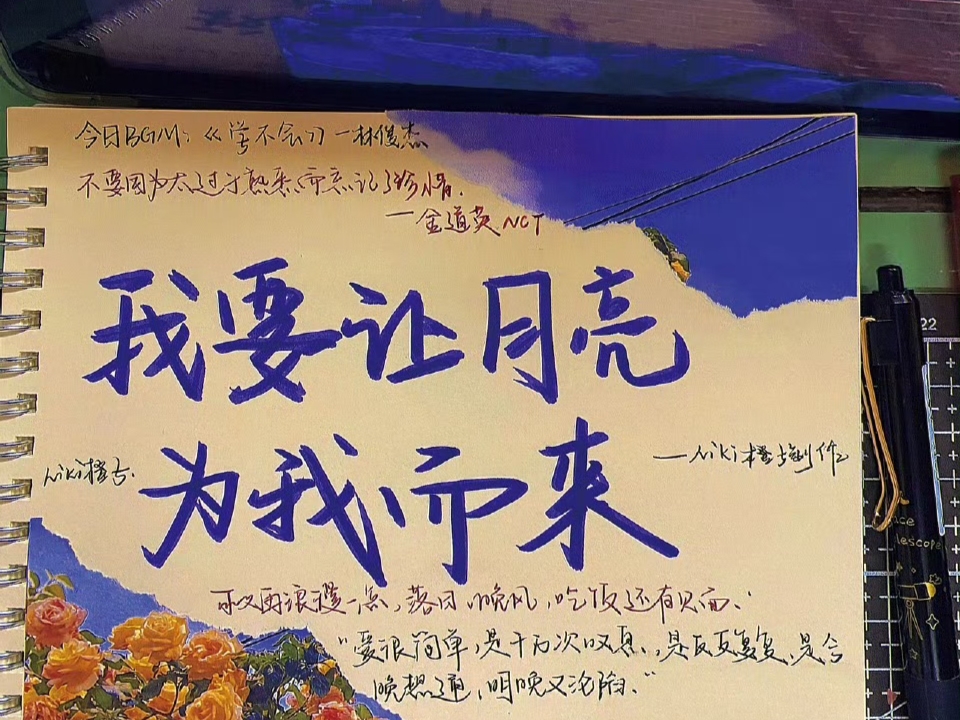 今日BGM：《学不会》—林俊杰
不要因为太过于熟悉,而忘记了珍惜.
—金道英NCT
我要让月亮
为我而来
Niki橙古.
—Niki橙古制作
可以再浪漫一点,落日,晚风,吃饭还有见面.
"爱很简单,是千万次叹息,是反反复复,是今
晚想通,明晚又沦陷."
22